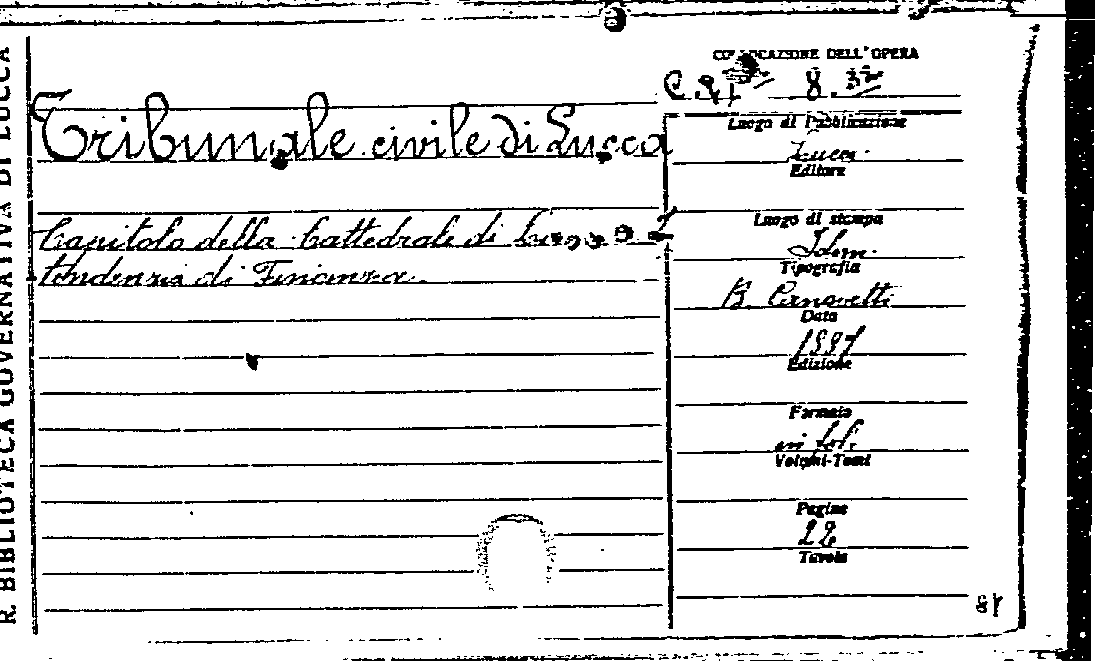 R. BIBLIOTECA GOVERNATIVA DI LUCCA
COLLOCAZIONE DELL'OPERA
8
Tribunale civile di Lucca
Capitolo della Cattedrale di
tendenza di Finanza.
Luogo di Pubblicazione
Lucca.
Editore
Luogo di stampa
Idem.
Tipografia
B. Canovetti
Data
Edizione
Formato
in fol.
Volumi-Tomi
Pagine
22
Tavole